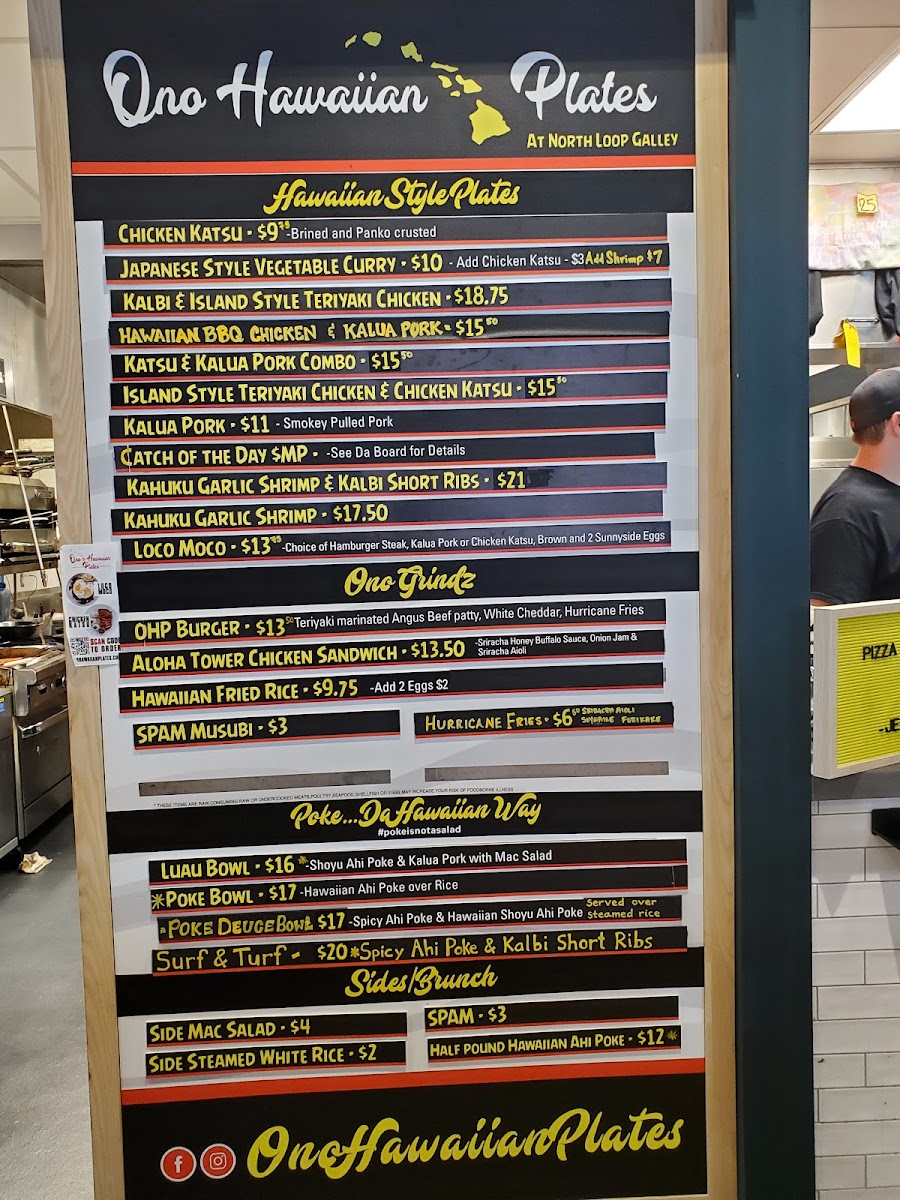 Ono Hawaiian Plates
AT NORTH LOOP GALLEY
Hawaiian Style Plates
CHICKEN KATSU - $9 -Brined and Panko crusted
JAPANESE STYLE VEGETABLE CURRY - $10 - Add Chicken Katsu - $3 Add Shrimp $7
KALBI & ISLAND STYLE TERIYAKI CHICKEN - $18.75
HAWAIIAN BBQ CHICKEN & KALUA PORK - $15 50
KATSU & KALUA PORK COMBO - $15 50
ISLAND STYLE TERIYAKI CHICKEN & CHICKEN KATSU - $15 50
KALUA PORK - $11 - Smokey Pulled Pork
CATCH OF THE DAY $MP - -See Da Board for Details
KAHUKU GARLIC SHRIMP & KALBI SHORT RIBS - $21
KAHUKU GARLIC SHRIMP - $17.50
LOCO MOCO - $13 -Choice of Hamburger Steak, Kalua Pork or Chicken Katsu, Brown and 2 Sunnyside Eggs
Ono Grindz
OHP BURGER - $13 50 Teriyaki marinated Angus Beef patty, White Cheddar, Hurricane Fries
ALOHA TOWER CHICKEN SANDWICH - $13.50 -Sriracha Honey Buffalo Sauce, Onion Jam &
Sriracha Aioli
HAWAIIAN FRIED RICE - $9.75 -Add 2 Eggs $2
SPAM MUSUBI - $3
HURRICANE FRIES - $6 50 SRIRACHA AIOLI
FURIKAKE
*THESE ITEMS ARE RAW. CONSUMING RAW OR UNDERCOOKED MEATS, POULTRY, SEAFOOD, SHELLFISH OR EGGS MAY INCREASE YOUR RISK OF FOODBORNE ILLNESS
Poke...Da Hawaiian Way
#pokeisnotasalad
LUAU BOWL - $16 *-Shoyu Ahi Poke & Kalua Pork with Mac Salad
*POKE BOWL - $17 -Hawaiian Ahi Poke over Rice
*POKE DEUCE BOWL $17 -Spicy Ahi Poke & Hawaiian Shoyu Ahi Poke served over
steamed rice
Surf & Turf - $20 *Spicy Ahi Poke & Kalbi Short Ribs
Sides/Brunch
SIDE MAC SALAD - $4
SPAM - $3
SIDE STEAMED WHITE RICE - $2
HALF POUND HAWAIIAN AHI POKE - $12 *
OnoHawaiianPlates
Ono Hawaiian
Plates
LOCO
MOCO
SCAN CODE
TO ORDER
25
PIZZA
-JE